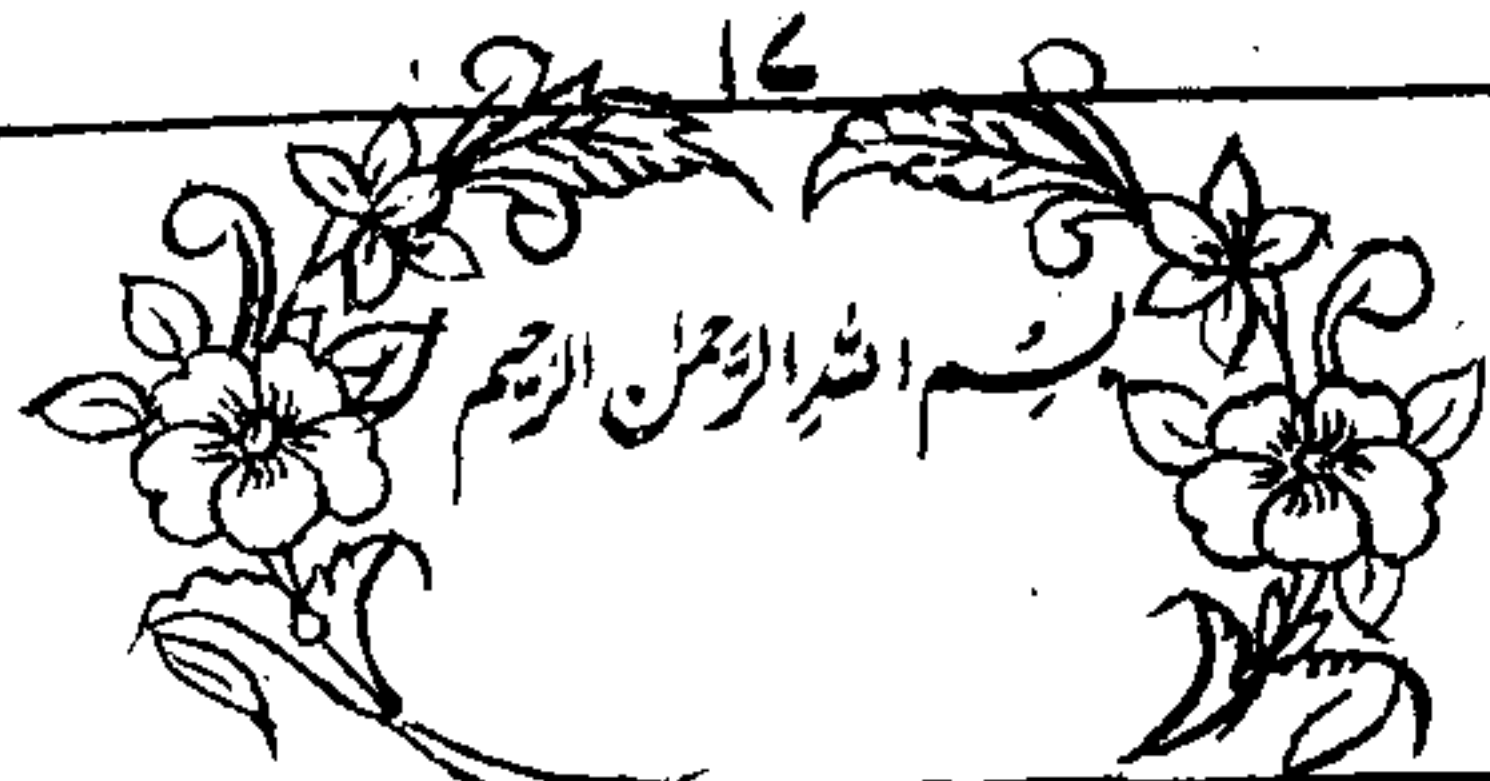 ۱۷
بِسْمِ اللّٰهِ الرَّحْمٰنِ الرَّحِیْمِ